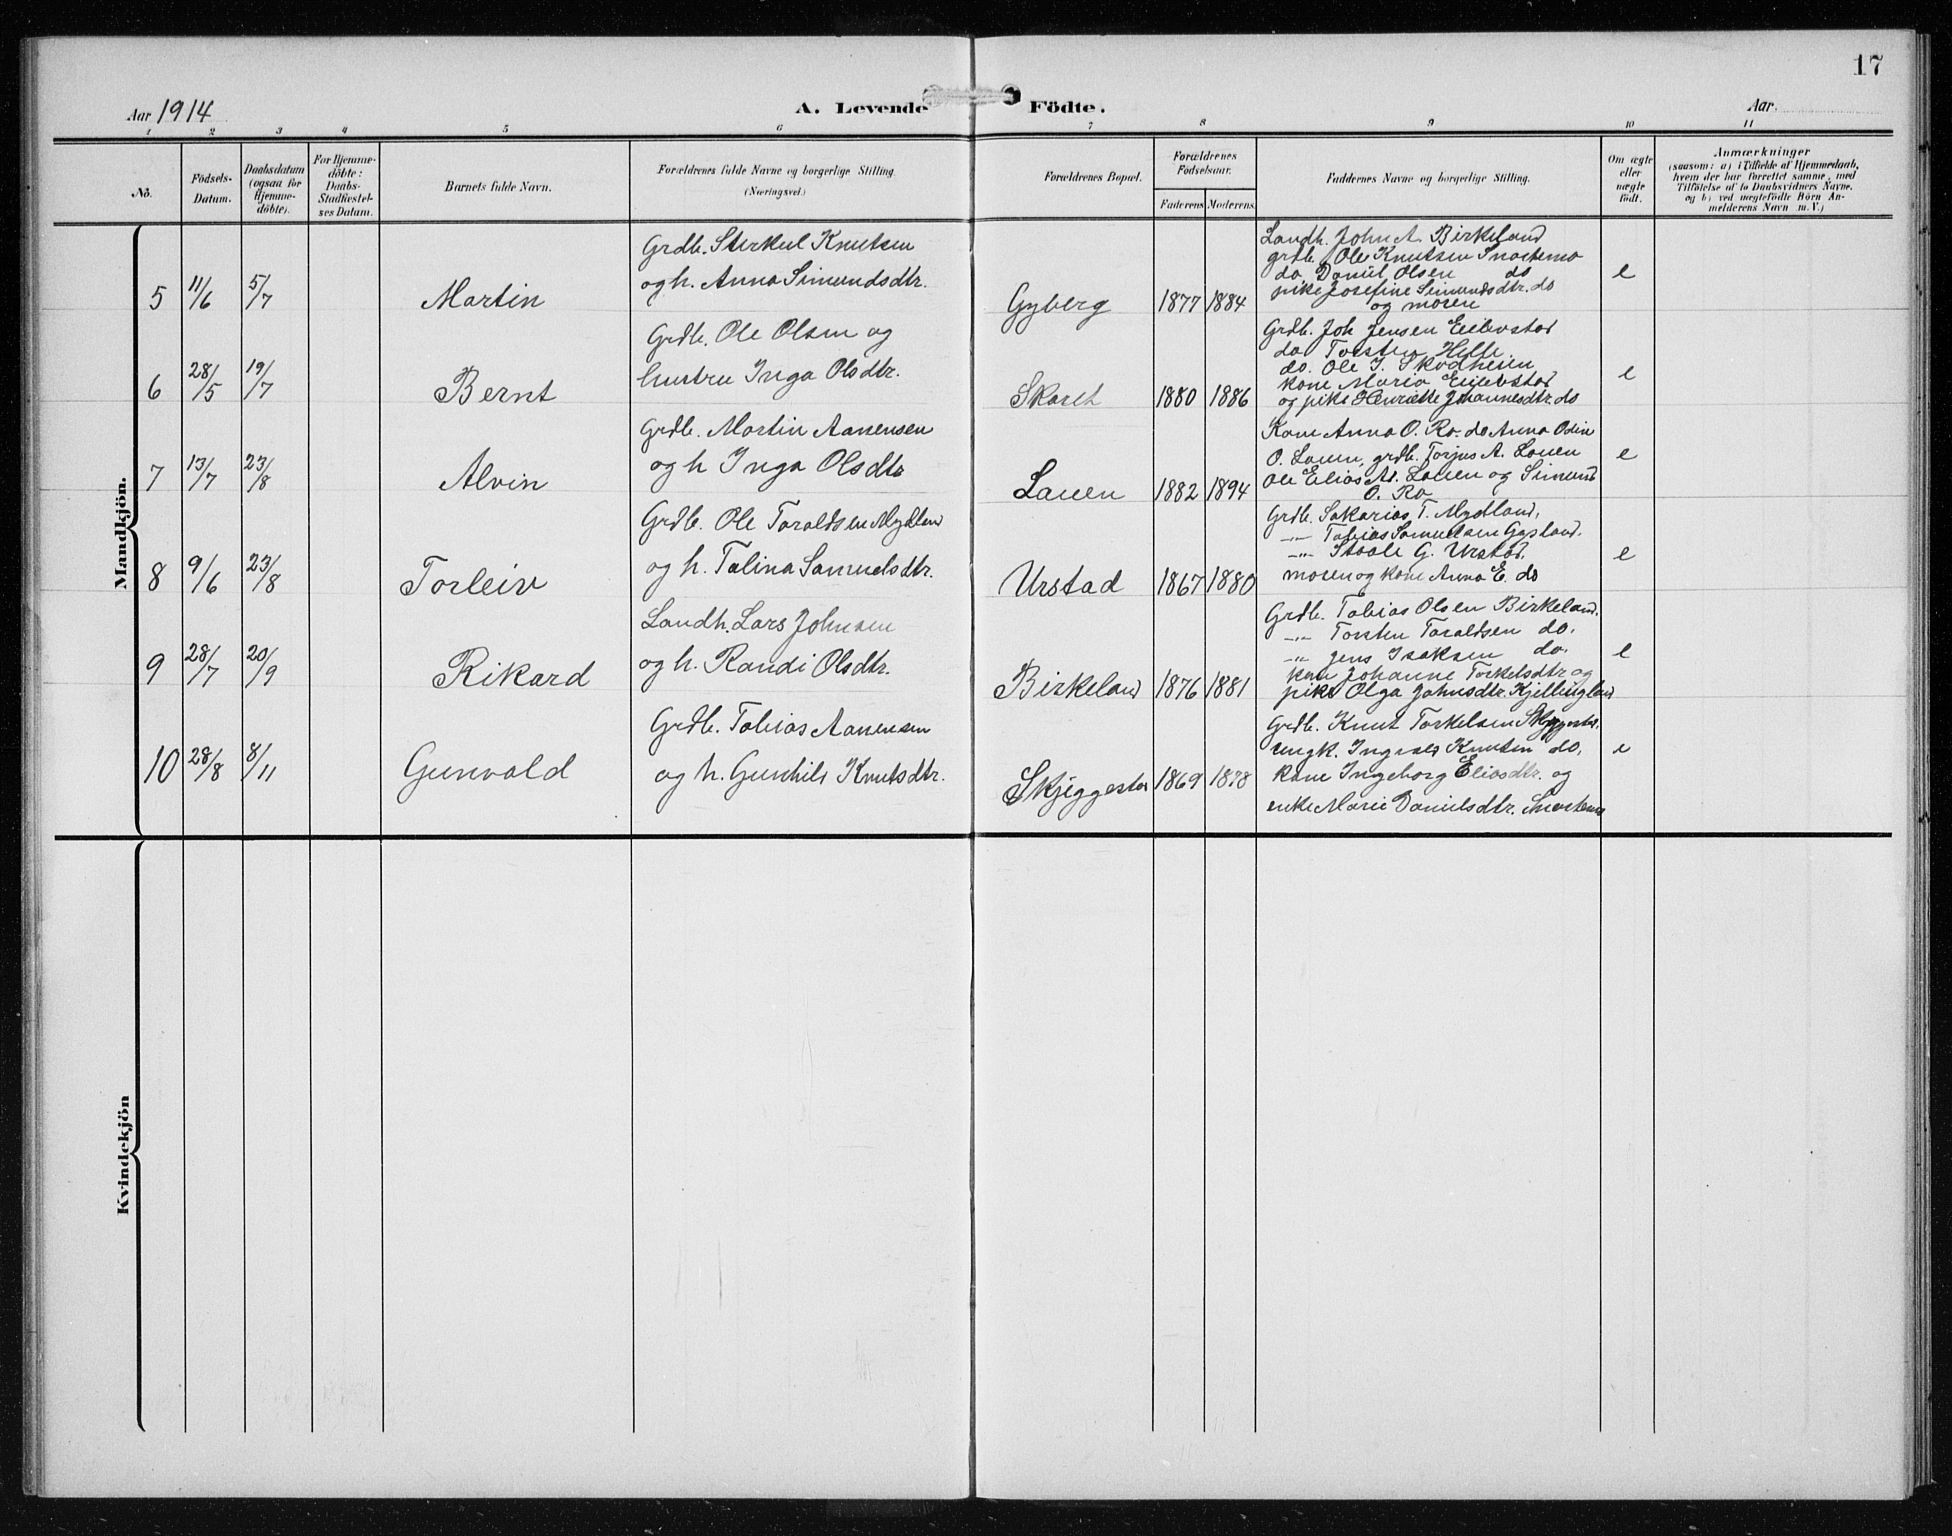 17
Aar 1914
A. Levende Födte.
Aar
1 2 3 4 5 6 7 8 9 10 11
No.
Födsels-Datum.
Daabsdatum (ogsaa for Hjemme-döbte).
For Hjemme-döbte: Daabs-Stadfæstel-ses Datum.
Barnets fulde Navn.
Forældrenes fulde Navne og borgerlige Stilling. (Næringsvei.)
Forældrenes Bopæl.
Forældrenes Födselsaar.
Faderens Moderens
Faddernes Navne og borgerlige Stilling.
Om ægte eller uægte födt.
Anmærkninger
(saasom: a) i Tilfælde af Hjemmedaab,
hvem der har forrettet samme, med
Tilföielse af to Daabsvidners Navne,
og b) ved uegtefödte Börn An-
melderens Navn m. V.)
Mandkjön.
5 11/6 5/7 Martin
Grdb. Sterkul Knutsen
og h. Anna Simundsdtr.
Gyberg 1877 1884
Landh. John A. Birkeland
grdb. Ole Knutsen Snartemo
do Daniel Olsen do
pike Josefine Simundsdtr. do
og moren
e
6 28/5 19/7 Bernt
Grdb. Ole Olsen og
hustru Inga Olsdtr.
Skaret 1880 1886
Grdb. Joh Jensen Eilevstad
do Torsten Helle
do. Ole J. Skodheien
kone Maria Eilevstad
og pike Henriette Johannesdtr. do
e
7 13/7 23/8 Alvin
Grdb. Martin Aanensen
og h Inga Olsdtr
Lauen 1882 1894
Kone Anna O. Ro. do Anna Odin
O. Lauen, grdb. Torjus A. Lauen
Ole Elias At. Lauen og Simund
O. Ro
e
8 9/6 23/8 Torleiv
Grdb. Ole Taraldsen Mydland
og h. Talina Samuelsdtr.
Urstad 1867 1880
Grdb. Sakarias T. Mydland,
-"- Tobias Samuelsen Gysland.
-"- Staale G. Urstad,
moren og kone Anna E. do
e
9 28/7 20/9 Rikard
Landh. Lars Johnsen
og h. Randi Olsdtr.
Birkeland 1876 1881
Grdb. Tobias Olsen Birkeland.
-"- Torsten Taraldsen do.
-"- Jens Isaksen do.
kone Johanne Torkelsdtr og
pike Olga Johnsdtr. Kjellingland
e
10 28/8 8/11 Gunvald
Grdb. Tobias Aanensen
og h. Gunhild Knutsdtr.
Skjeggestad 1869 1878
Grdb. Knut Torkelsen Skjeggestad.
ungk. Ingvald Knutsen do.
kone Ingeborg Eliasdtr. og
enke Marie Danielsdtr. Snartemo
e
Kvindekjön